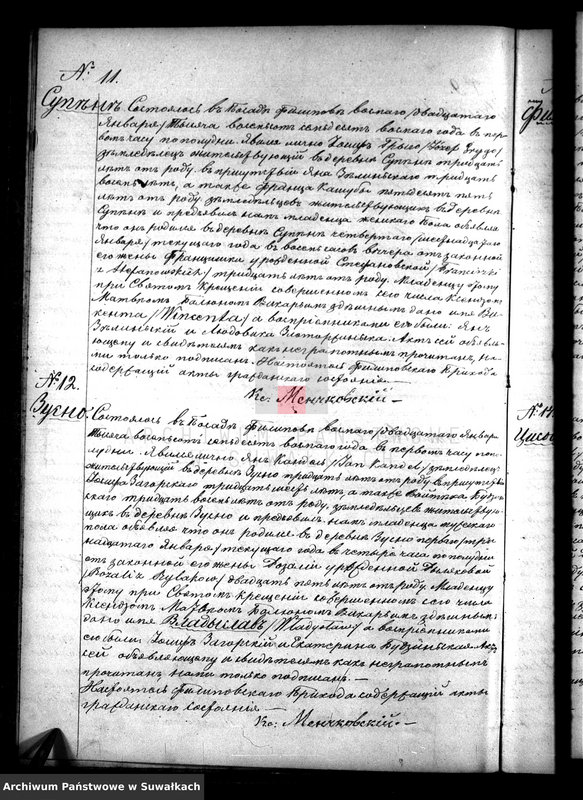 № 11.
Суппѣнь
Состоялось въ Посадѣ Филиповѣ восьмаго /двадцатаго
Января/ тысяча восемьсотъ семьдесятъ восьмаго года въ пер-
вомъ часу по полудни. Явился лично Іосифъ
земледѣлецъ жительствующій въ деревнѣ Суппѣнь тридцать
лѣтъ отъ роду, въ присутствіи Яна тридцать
восемь лѣтъ, а также Франца пятьдесятъ пять
лѣтъ отъ роду, земледѣльцевъ жительствующихъ въ деревнѣ
Суппѣнь и предъявилъ намъ младенца женскаго пола объявляя
что онъ родился въ деревнѣ Суппѣнь четвертаго /шестнадцатаго
Января/ текущаго года въ восемь часовъ вечера отъ законной
его жены Францишки урожденной Стефановской /Franciszki
z Stefanowskich/ тридцать лѣтъ отъ роду. Младенцу этому
при Святомъ Крещеніи совершенномъ сего числа Ксендзомъ
Викаріемъ здѣшнимъ дано имя Ви-
кента /Wincenta/ а воспріемниками его были: Янъ
и Людовика Акт сей объявля-
ющему и свидѣтелямъ какъ неграмотнымъ прочитанъ, на-
ми только подписанъ. Настоятель Филиповскаго Прихода
содержащій акты гражданскаго состоянія.—
Кс: Менчковскій.—
№ 12.
Зусно.
Состоялось въ Посадѣ Филиповѣ восьмаго /двадцатаго Января/
тысяча восемьсотъ семьдесятъ восьмаго года въ первомъ часу по по-
лудни. Явился лично Янъ Кандель /Jan Kandel/ земледѣлецъ
жительствующій въ деревнѣ Зусно тридцать лѣтъ отъ роду, въ присутствіи
Іосифа Загорскаго тридцать шесть лѣтъ, а также Войтѣха Будзин-
скаго тридцать восемь лѣтъ отъ роду, земледѣльцевъ жительствую-
щихъ въ деревнѣ Зусно и предъявилъ намъ младенца мужскаго
пола объявляя что онъ родился въ деревнѣ Зусно перваго /три-
надцатаго Января/ текущаго года въ четыре часа по полудни
отъ законной его жены Розаліи урожденной
/Rozalii z / двадцать пять лѣтъ отъ роду. Младенцу
этому при Святомъ Крещеніи совершенномъ сего числа
Ксендзомъ Викаріемъ здѣшнимъ
дано имя Владыславъ /Władysław/ а воспріемниками
его были: Іосифъ Загорскій и Екатерина Будзинская. Актъ
сей объявляющему и свидѣтелямъ какъ неграмотнымъ
прочитанъ, нами только подписанъ.—
Настоятель Филиповскаго Прихода содержащій акты
гражданскаго состоянія.—
Кс: Менчковскій.—
№ 14
Archiwum Państwowe w Suwałkach